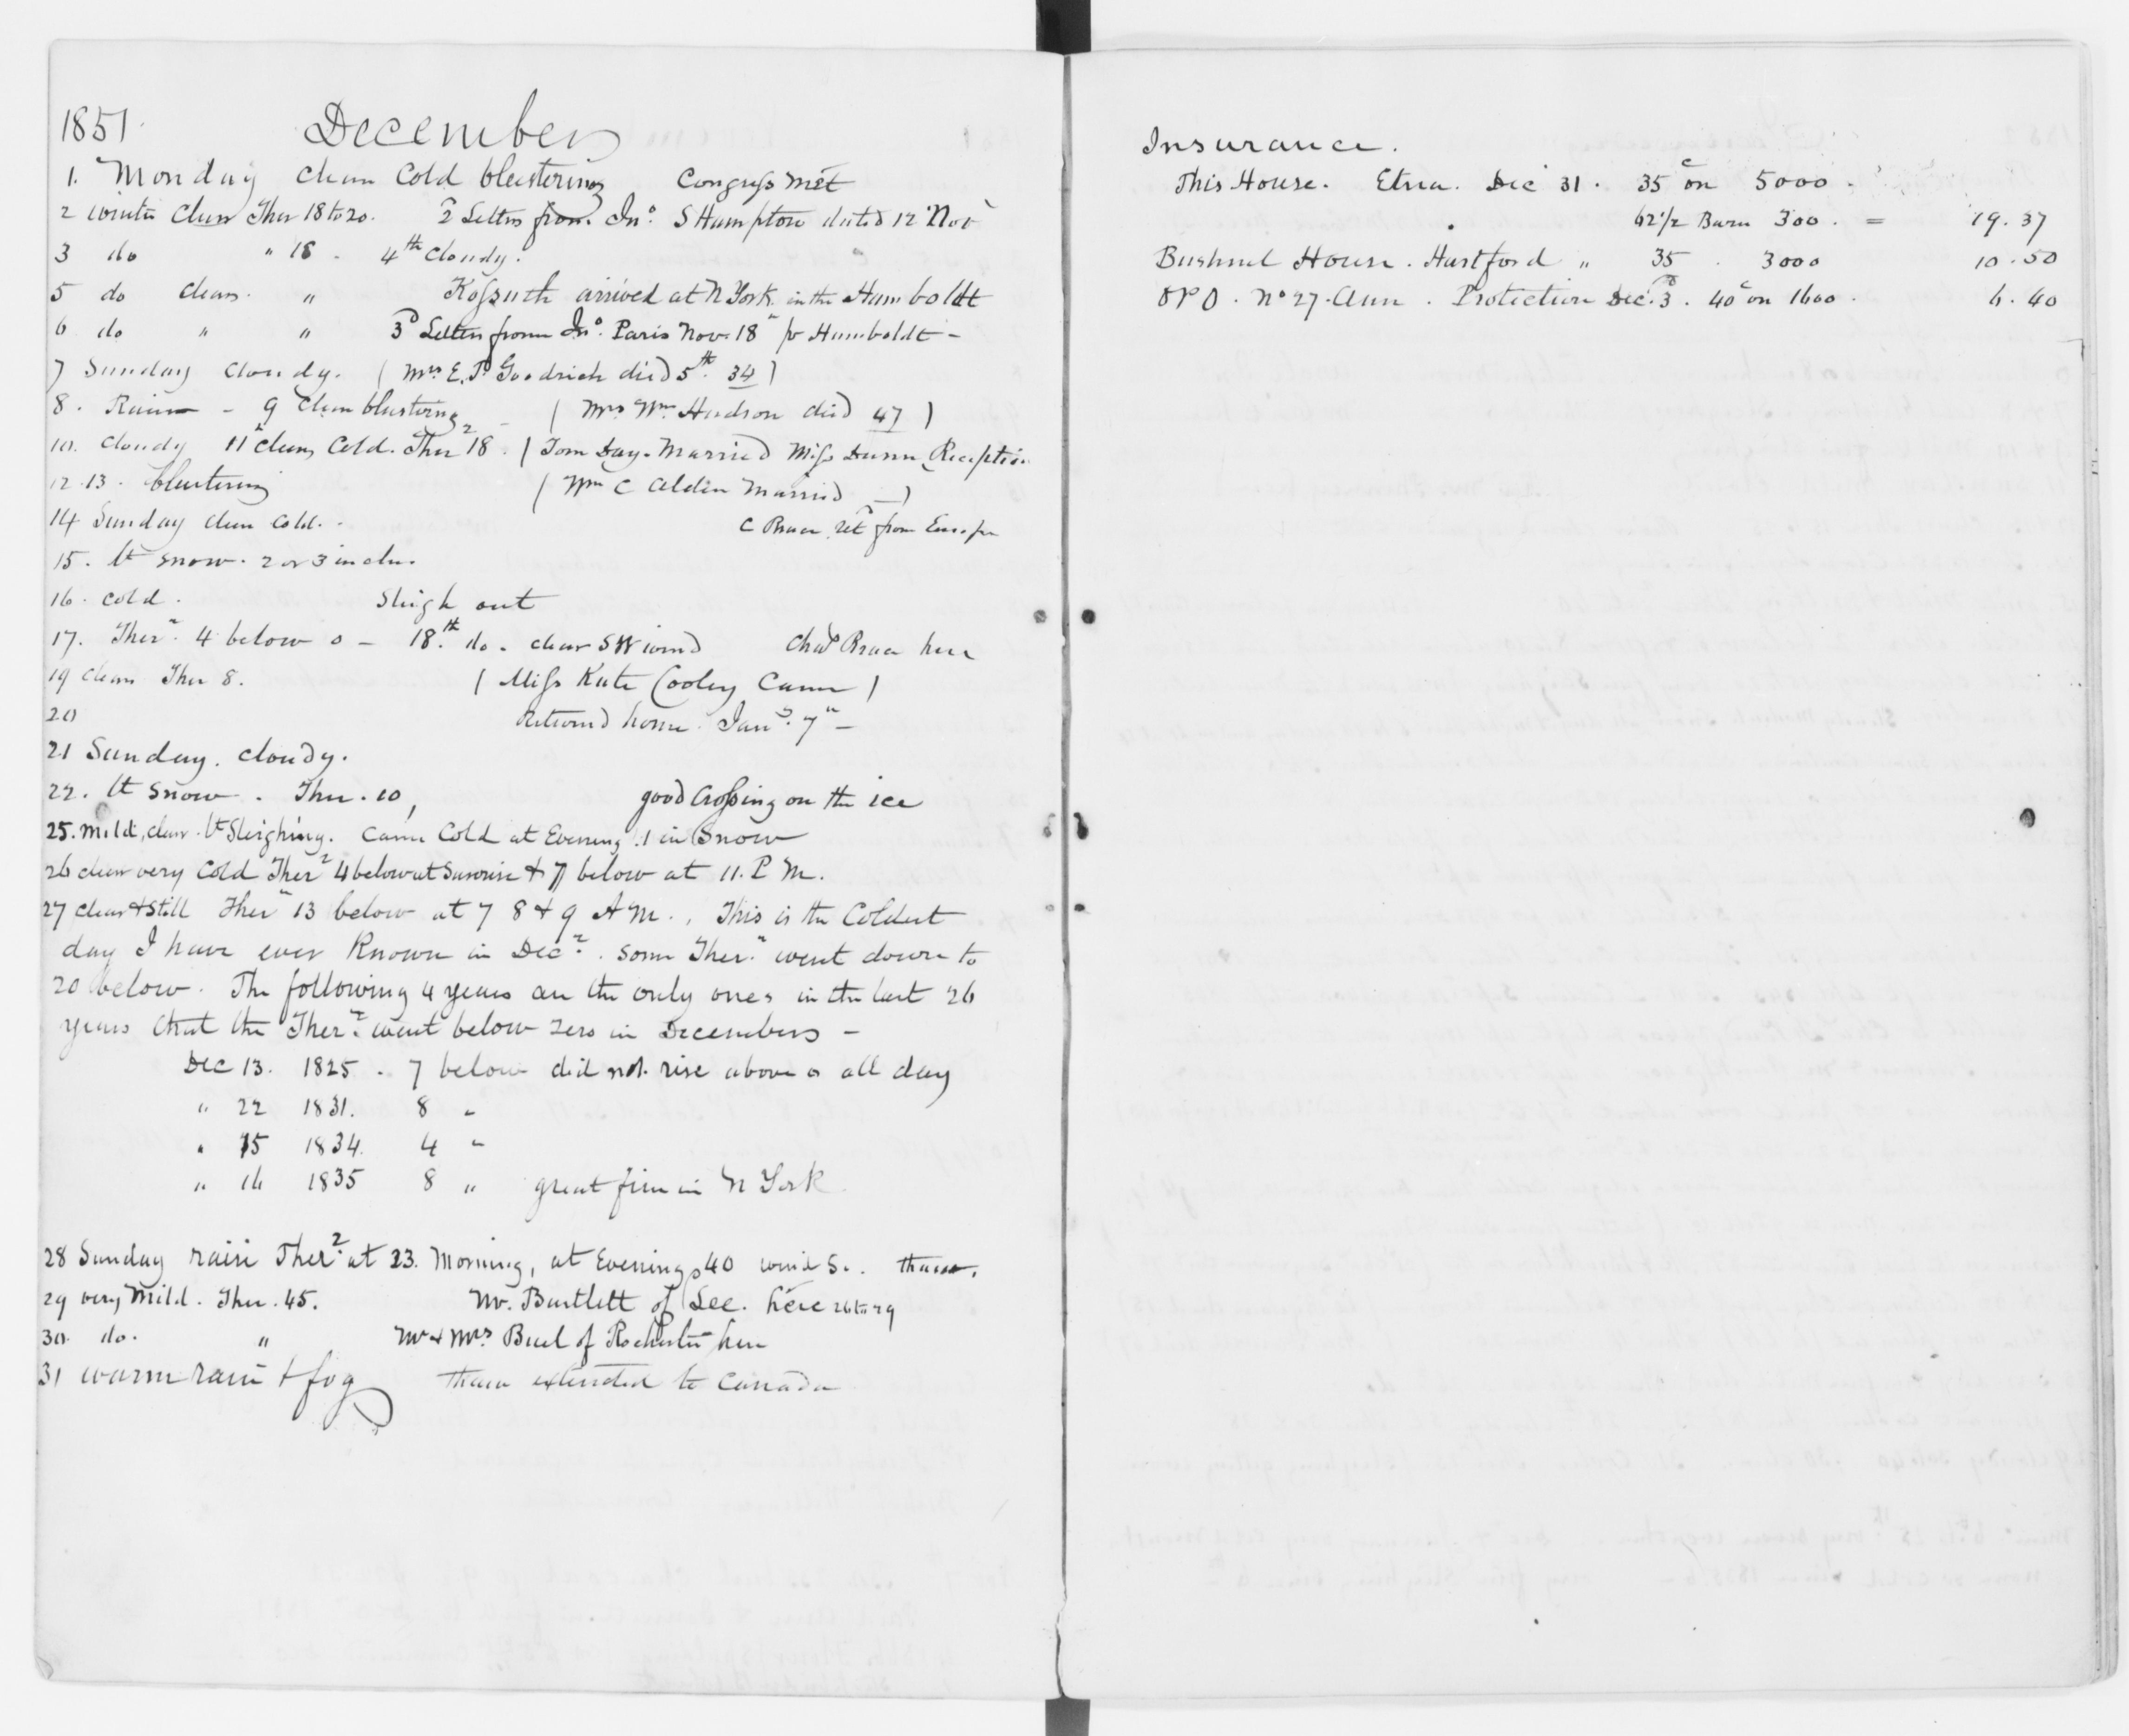 1851. December
1. Monday clear Cold blustering Congress met
2 winter Clear Ther 18 to 20. 2 Letters from Jno. S Hampton dated 12 Nov
3 do " 18 - 4th Cloudy.
5 do clear. " Kossuth arrived at N York in the Humboldt
6 do " " 3d Letter from Jno. Paris Nov. 18 " pr Humboldt -
7 Sunday cloudy. ( Mrs E. P. Goodrich died 5th. 34 )
8. Rain - 9 Clear blustering - ( Mrs Wm Hudson died 47 )
10. Cloudy 11 " clear, Cold. Ther 18. ( Tom Day. Married Miss Dunn Reception
12.13. blustering ( Wm C Alden Married — )
14 Sunday clear cold. - C Brace retd from Europe
15. lt snow. 2 or 3 inches.
16. cold. Sleigh out
17. Ther. 4 below 0 - 18.th do. clear SW wind Chas Brace here
19 clear Ther 8. ( Miss Kate Cooley Came )
20 returned home. Jany. 7 " -
21 Sunday. cloudy.
22. lt snow. Ther. 10, good Crossing on the ice
25. Mild, clear. lt Sleighing. came Cold at Evening. 1 in Snow
26 clear very Cold Ther 4 below at Sunrise & 7 below at 11. P M.
27 clear & still Ther 13 below at 7 8 & 9 A M., This is the Coldest
day I have ever Known in Decr. some Ther. went down to
20 below. The following 4 years are the only ones in the last 26
years that the Ther. went below zero in December -
Dec 13. 1825. 7 below did not rise above 0 all day
" 22 1831. 8 "
" 15 1834. 4 "
" 16 1835 8 " great fire in N York.
28 Sunday rain Ther. at 23. Morning, at Evening 40 wind S.. thaw.
29 very Mild. Ther. 45. Mr. Bartlett of Lee. here 26 to 29
30. do. " Mr & Mrs. Buel of Rochester here
31 warm rain & fog thaw extended to Canada
Insurance.
This House. Etna. Dec 31. 35 c on 5000.
62 1/2 Barn 300. = 19.37
Bushnel House. Hartford " 35. 3000 10.50
No 27. Ann. Protection Dec. 3d. 40 c on 1600. 6.40